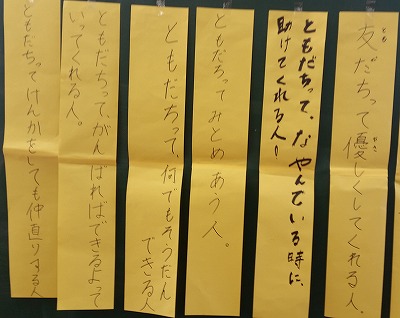 友だちって優しくしてくれる人。
ともだちって、なやんでいる時に、
助けてくれる人!
ともだちってみとめあう人。
ともだちって、何でもそうだん
できる人
ともだちって、がんばればできるよって
いってくれる人。
ともだちってけんかをしても仲直りする人